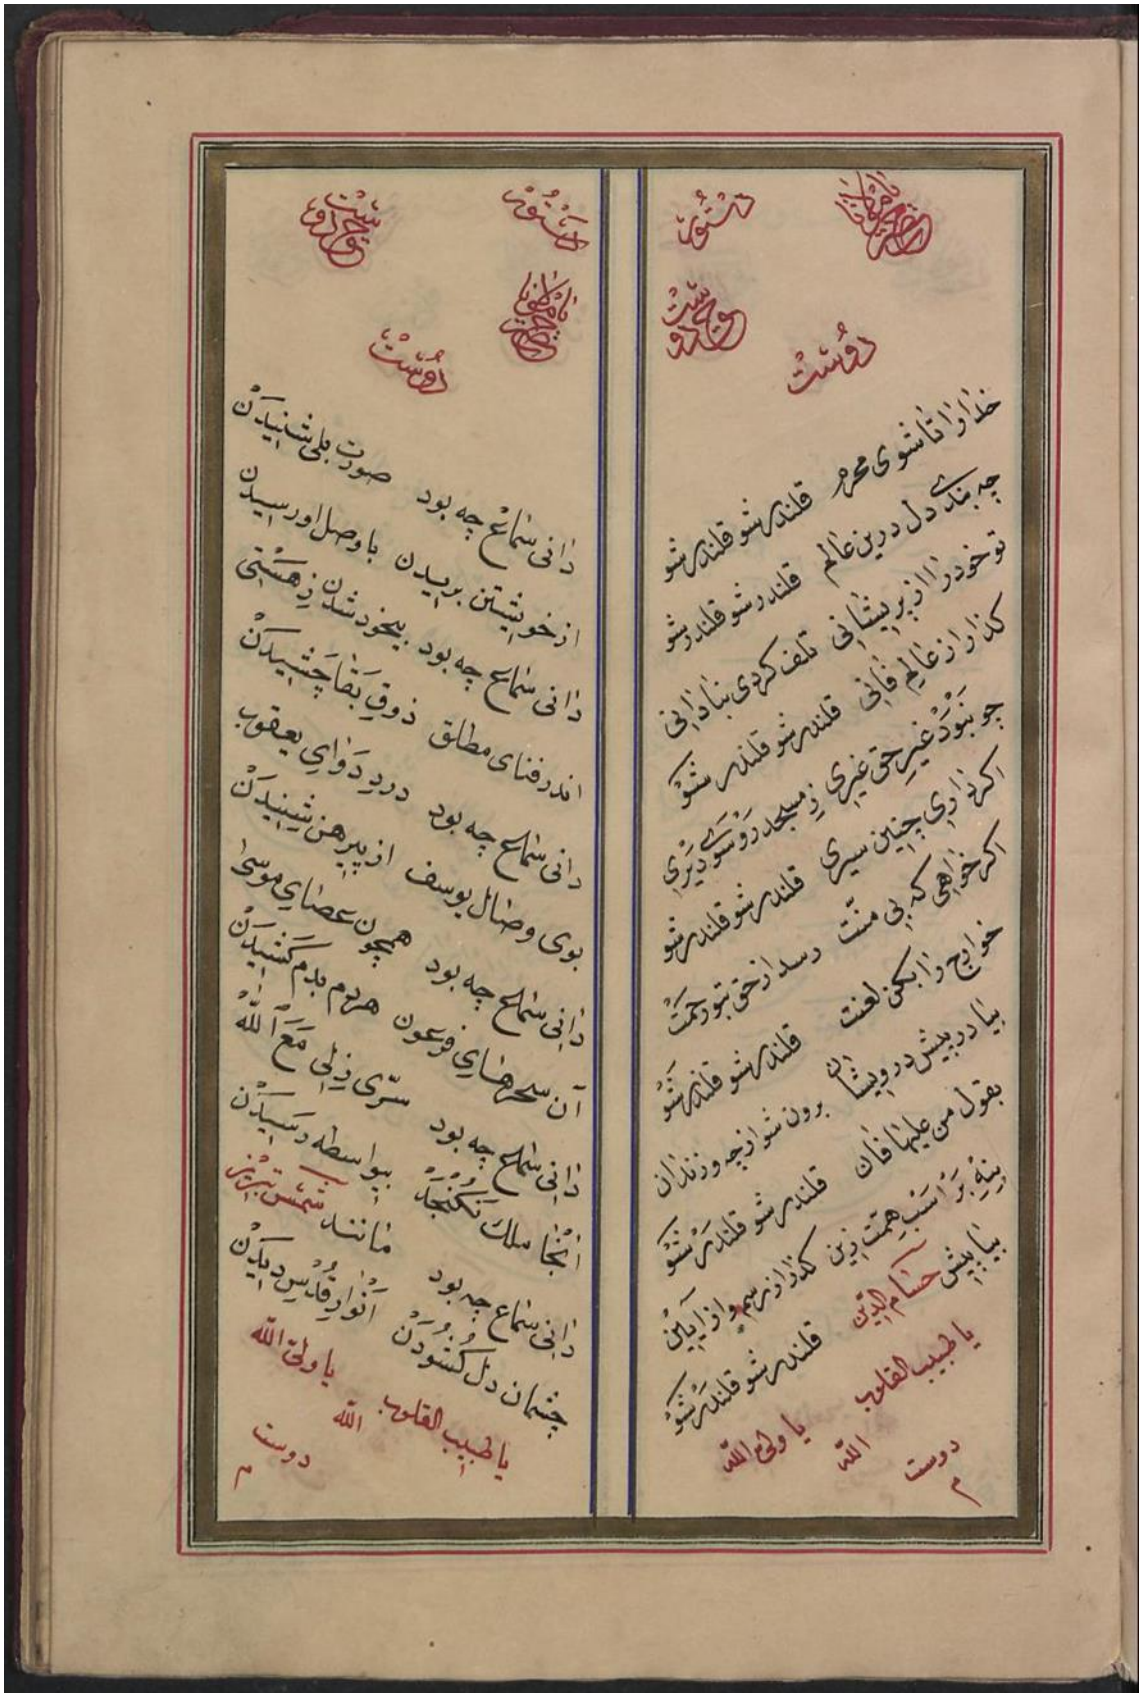 دوست
خدا را تا شوی محرم قلندر شو قلندر شو
چه بندے دل درین عالم قلندر شو قلندر شو
تو خود را از پریشانی تلف کردی بنادانی
کذر از عالم فانی قلندر شو قلندر شو
چو نبود غیر حق غیری ز مسجد رو سوے دیری
اکر داری چنین سیری قلندر شو قلندر شو
اکر خواهی که بی منت رسد از حق بتو رحمت
خوارج را بکن لعنت قلندر شو قلندر شو
بیا در پیش درویشان برون شو از چه و زندان
بقول من علیها فان قلندر شو قلندر شو
بنه بر اسب همت زین کذر از رسم و از آیین
بیا پیش حسام الدین قلندر شو قلندر شو
یا طبیب القلوب یا ولی الله
الله
دوست
م
دوست
دانی سماع چه بود صوت بلی شنیدن
از خویشتن بریدن با وصل او رسیدن
دانی سماع چه بود بیخود شدن ز هستی
اندر فنای مطلق ذوق بقا چشیدن
دانی سماع چه بود درد دوای یعقوب
بوی وصال یوسف از پیرهن شنیدن
دانی سماع چه بود همچون عصای موسی
آن سحرهای فرعون هردم بدم کشیدن
دانی سماع چه بود سری ز لی مع الله
آنجا ملک نکنجد بیواسطه رسیدن
دانی سماع چه بود مانند شمس تبریز
چشمان دل کشودن انوار قدس دیدن
یا طبیب القلوب یا ولی الله
الله
دوست
م